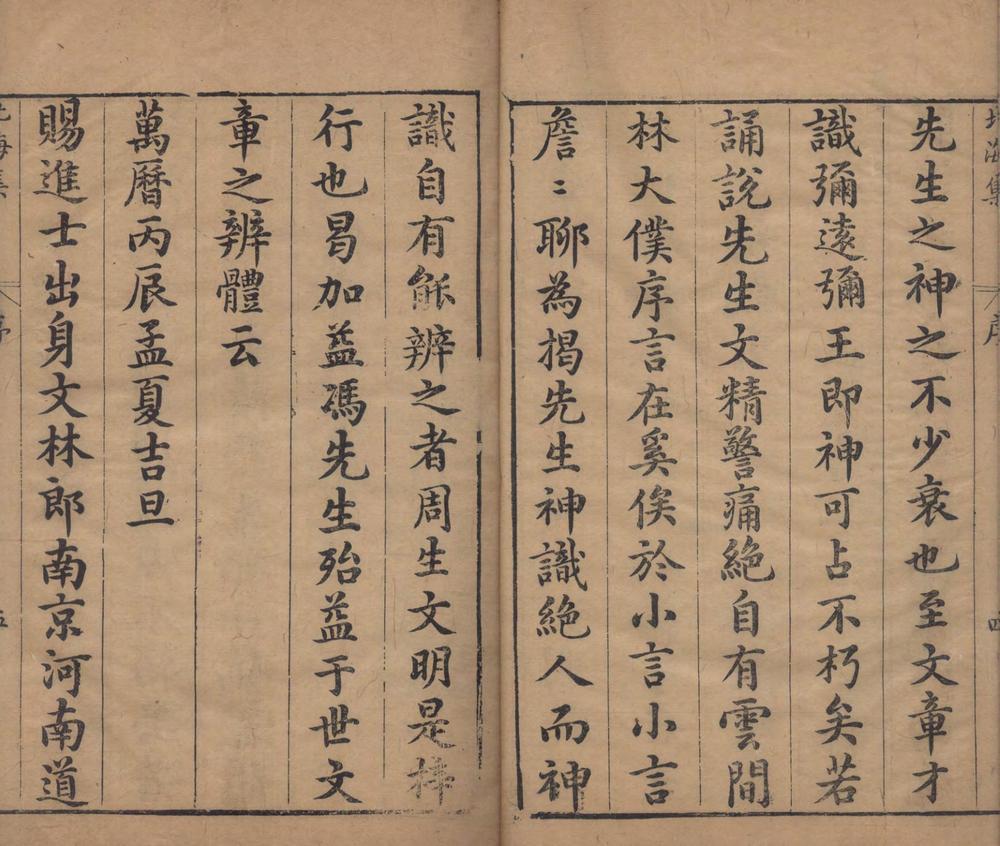 先生之神之不少衰也至文章才
識彌遠彌王即神可占不朽矣若
誦說先生文精警痛絕自有雲間
林大僕序言在奚俟於小言小言
詹〻聊為揭先生神識絕人而神
識自有能辨之者周生文明是梓
行也曷加益馮先生殆益于世文
章之辨體云
萬曆丙辰孟夏吉旦
賜進士出身文林郎南京河南道